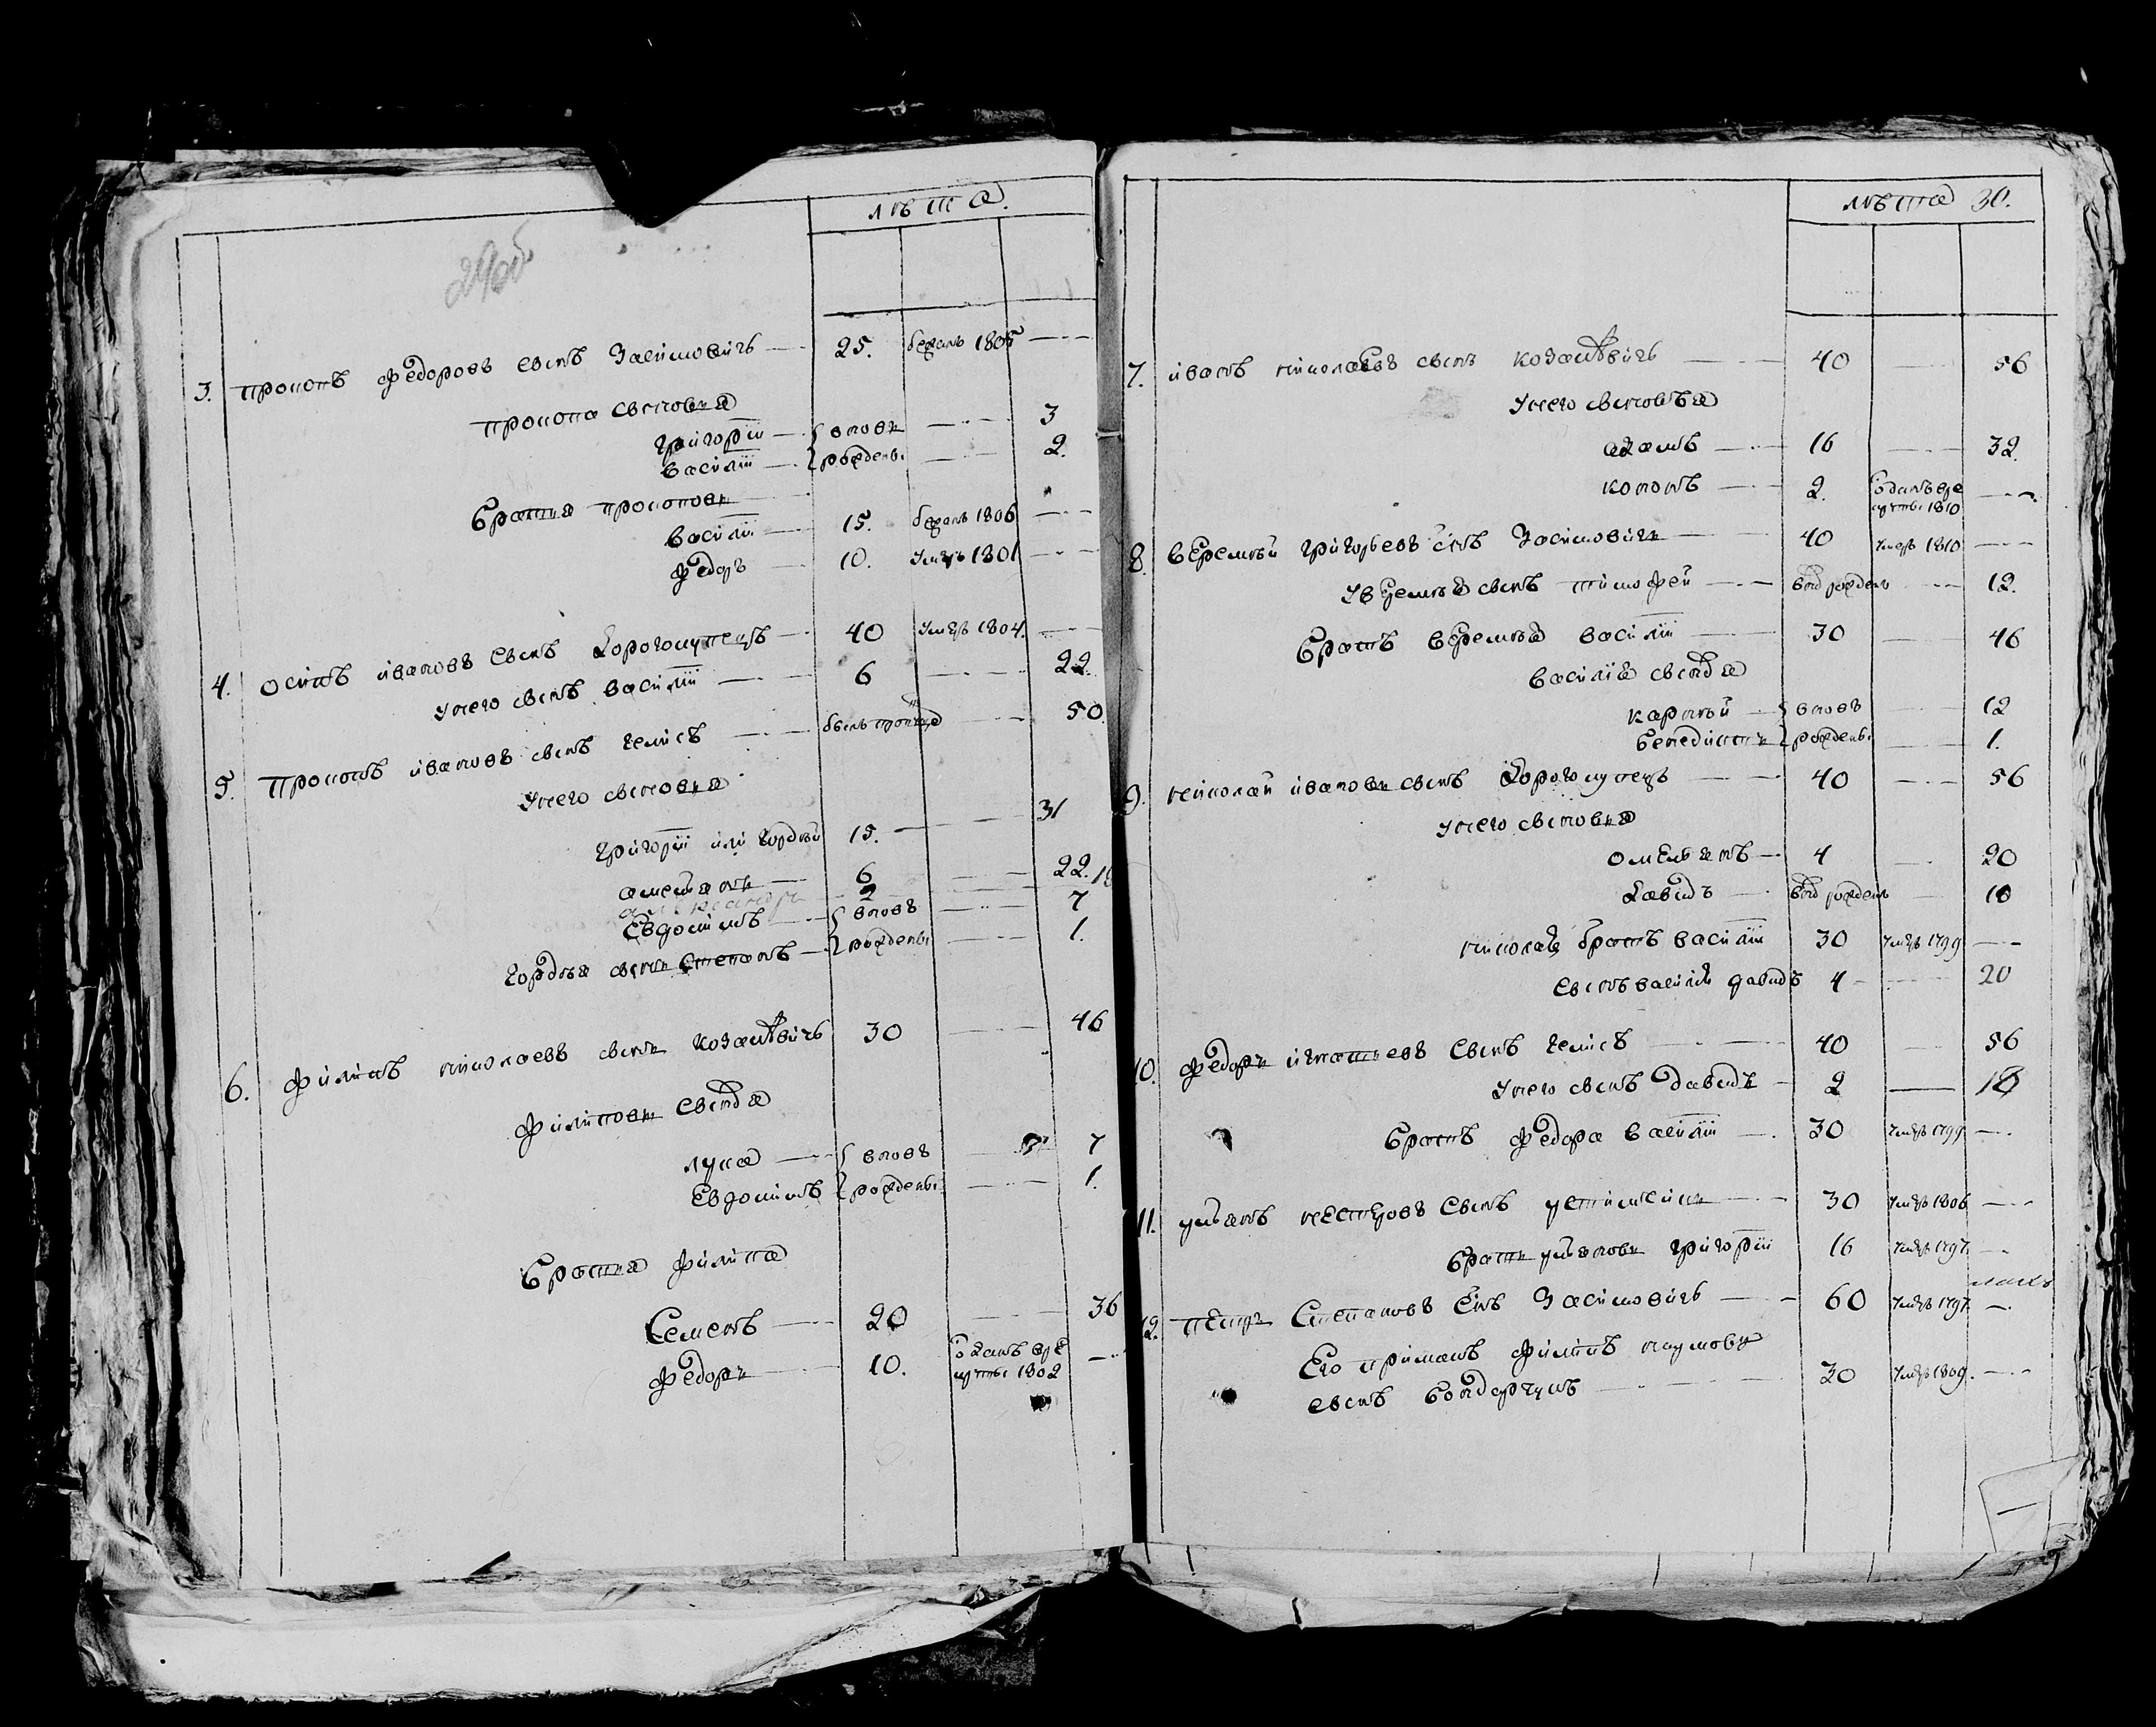 лѣта.
29об
3. прокопъ федоровъ сынъ Засимовичъ — 25. бежалъ 1805 —
прокопа сыновья
григорій — вновь — 3
василій — рождены — 2.
братья прокоповы
василій — 15. бежалъ 1806 —
федоръ — 10. умеръ 1801 —
4. осипъ ивановъ сынъ Дорогокупецъ — 40 умеръ 1804. —
у него сынъ василій — 6 — 22.
5. Прокопъ ивановъ сынъ — былъ — 50.
у него сыновья
григорій или гордѣй 15. — 31
6 — 22.
2
Евдокимъ — вновь — 7
гордѣя сынъ Степанъ — рождены — 1.
6. филипъ николаевъ сынъ 30 — 46
филиповы сыновья
лука — вновь — 7
Евдокимъ рождены — 1.
братья филипа
Семенъ — 20 — 36
федоръ — 10. отданъ врекруты 1802 —
лѣта 30.
7. иванъ николаевъ сынъ — 40 — 56
у него сыновья
адамъ — 16 — 32.
кононъ — 2. отданъ врекруты 1810 —
8. веремѣй григорьевъ сынъ Засимовичъ — 40 умеръ 1810 —
у веремѣя сынъ тимофей — вновь рожденъ — 12.
братъ веремѣя василій — 30 — 46
василія сыновья
карпѣй — вновь — 12
бенедиктъ рождены — 1.
9. николай ивановъ сынъ Дорогокупецъ — 40 — 56
у него сыновья
омельянъ — 4 — 20
давидъ — вновь рожденъ — 10
николая братъ василій 30 умеръ 1799 —
сынъ василія давидъ 4 — 20
10. федоръ игнатьевъ сынъ — 40 — 56
у него сынъ давидъ — 2 — 18
братъ федора василій — 30 умеръ 1799 —
11. ульянъ нестеровъ сынъ — 30 умеръ 1806 —
братъ ульяновъ григорій 16 умеръ 1797 —
12. петръ Степановъ сынъ Засимовичъ — 60 умеръ 1797 —
Его приимакъ филипъ наумовъ
сынъ бондарчукъ — 30 умеръ 1809. —